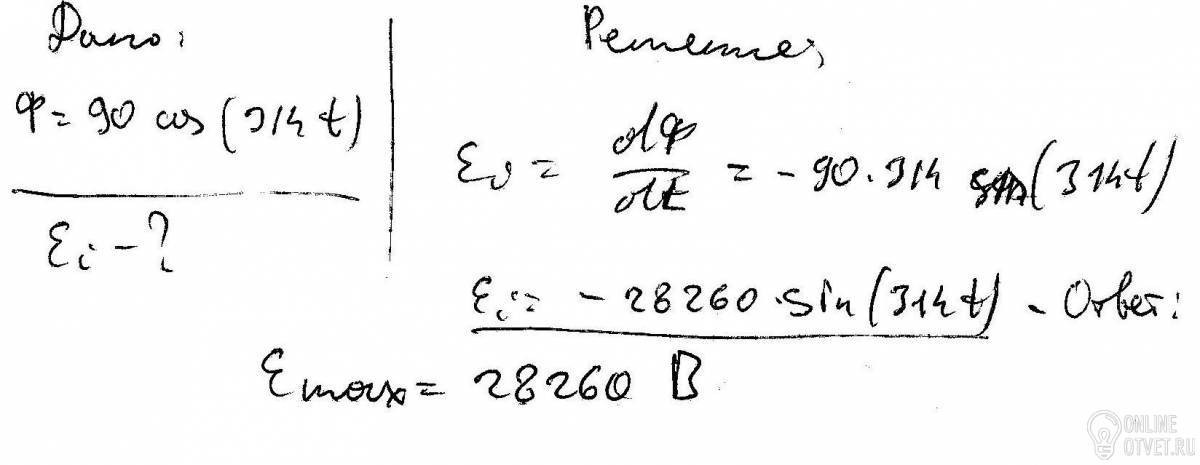 Дано:
Ф = 90 cos (314 t)
εi - ?
Решение:
εi = dФ/dt = - 90 · 314 sin (314t)
εi = - 28260 · sin (314 t) - Ответ:
εmax = 28260 В
ONLINE
OTVET.RU